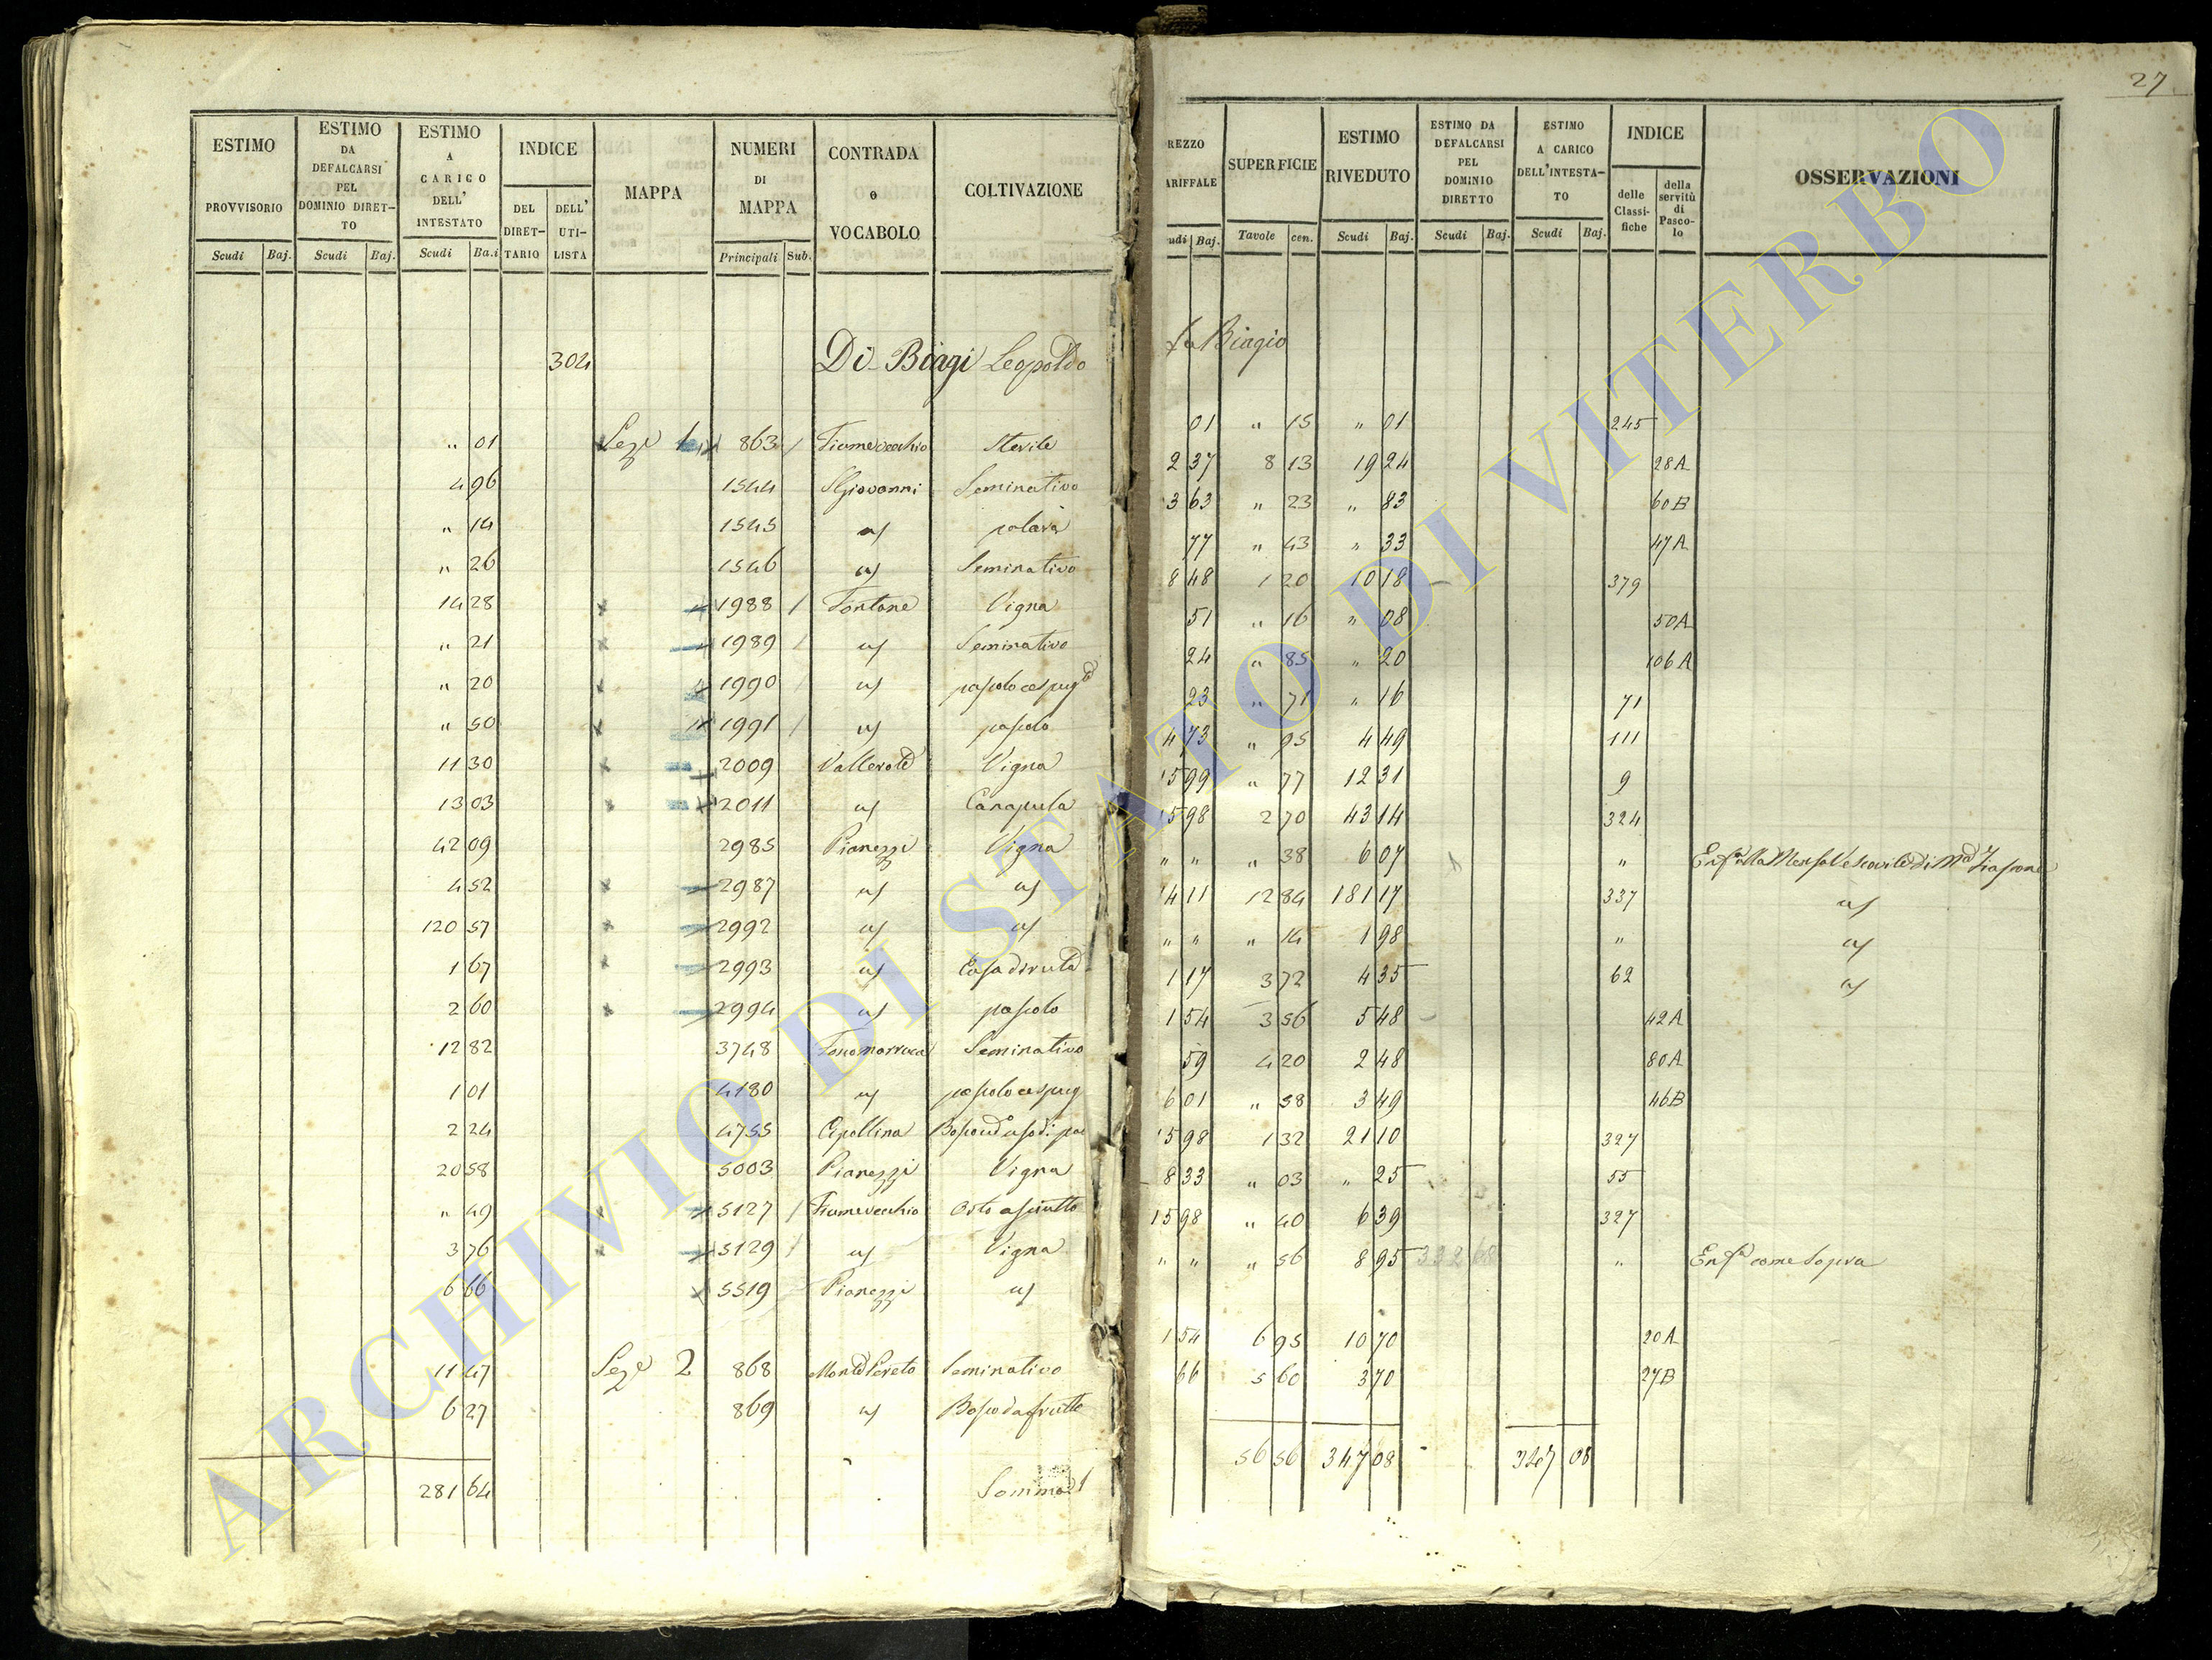 27
ESTIMO PROVVISORIO
ESTIMO DA DEFALCARSI PEL DOMINIO DIRETTO
ESTIMO A CARICO DELL' INTESTATO
INDICE
DEL DIRETTARIO
DELL' UTILISTA
MAPPA
NUMERI DI MAPPA
CONTRADA o VOCABOLO
COLTIVAZIONE
REZZO ARIFFALE
SUPERFICIE
ESTIMO RIVEDUTO
ESTIMO DA DEFALCARSI PEL DOMINIO DIRETTO
ESTIMO A CARICO DELL'INTESTATO
INDICE
delle Classifiche
della servitù di Pascolo
OSSERVAZIONI
Scudi Baj. Scudi Baj. Scudi Ba.i Principali Sub.
udi Baj. Tavole cen. Scudi Baj. Scudi Baj. Scudi Baj.
304 Di Biagi Leopoldo fu Biagio
" 01 Sez.e 1 863 Fiumevecchio Sterile
4 96 1544 S Giovanni Seminativo
" 14 1545 "
" 26 1546 " Seminativo
14 28 1988 Fontane Vigna
" 21 1989 " Seminativo
" 20 1990 " pascolo cespug
" 50 1991 " pascolo
11 30 2009 Vigna
13 03 2011 " Canapula
42 09 2985 Pianezzi Vigna
4 52 2987 " "
120 57 2992 " "
1 67 2993 " Casa diruta
2 60 2994 " pascolo
12 82 3748 Seminativo
1 01 4180 " pascolo cespug
2 24 4755 Cipollina
20 58 5003 Pianezzi Vigna
" 49 5127 Fiumevecchio Orto asciutto
3 76 5129 " Vigna
6 66 5519 Pianezzi "
11 47 Sez.e 2 868 Monte Pereto Seminativo
6 27 869 " Bosco da frutto
281 64 Somma
01 " 15 " 01 245
2 37 8 13 19 24 28A
3 63 " 23 " 83 60B
77 " 43 " 33 47A
8 48 1 20 10 18 379
51 " 16 " 08 50A
24 " 85 " 20 106A
23 " 71 " 16 71
4 73 " 95 4 49 111
15 99 " 77 12 31 9
15 98 2 70 43 14 324
" " " 38 6 07 " Enf.a alla Mensa Vescovile di
14 11 12 84 181 17 337 "
" " " 14 1 98 " "
1 17 3 72 4 35 62 "
1 54 3 56 5 48 42A
59 4 20 2 48 80A
6 01 " 58 3 49 46B
15 98 1 32 21 10 327
8 33 " 03 " 25 55
15 98 " 40 6 39 327
" " " 56 8 95 332 68 " Enf.a come Sopra
1 54 6 95 10 70 20A
66 5 60 3 70 27B
56 56 347 08 347 08
ARCHIVIO DI STATO DI VITERBO